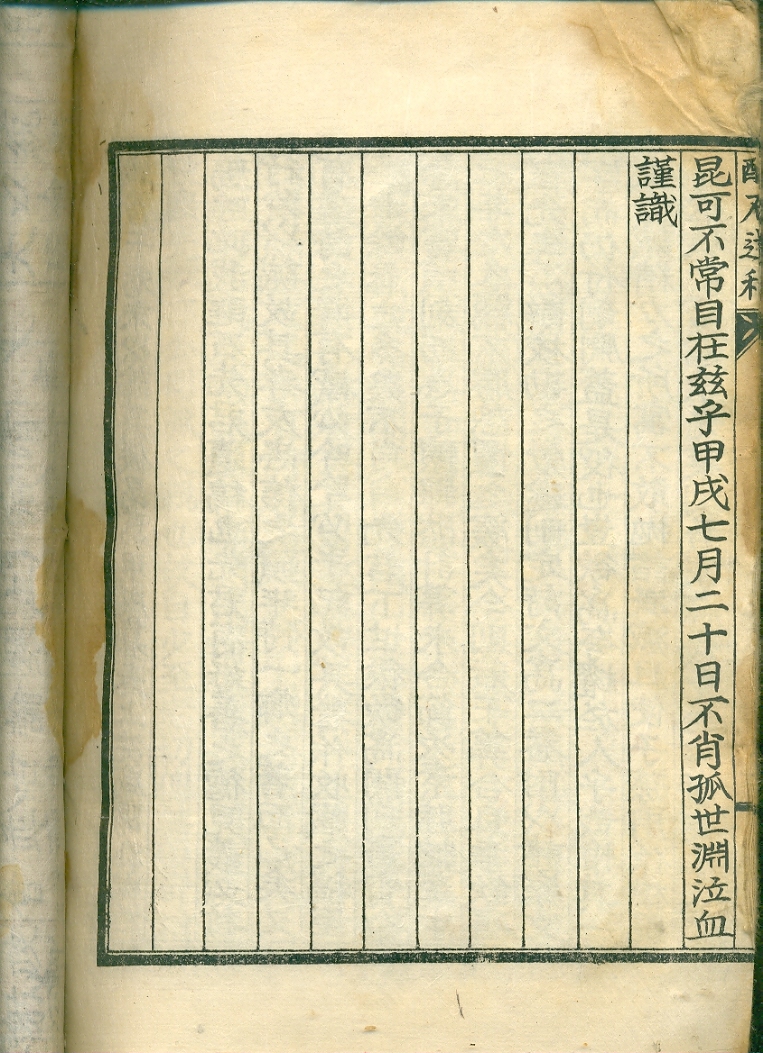 昆可不常目在兹乎甲戌七月二十日不肖孤世淵泣血
謹識